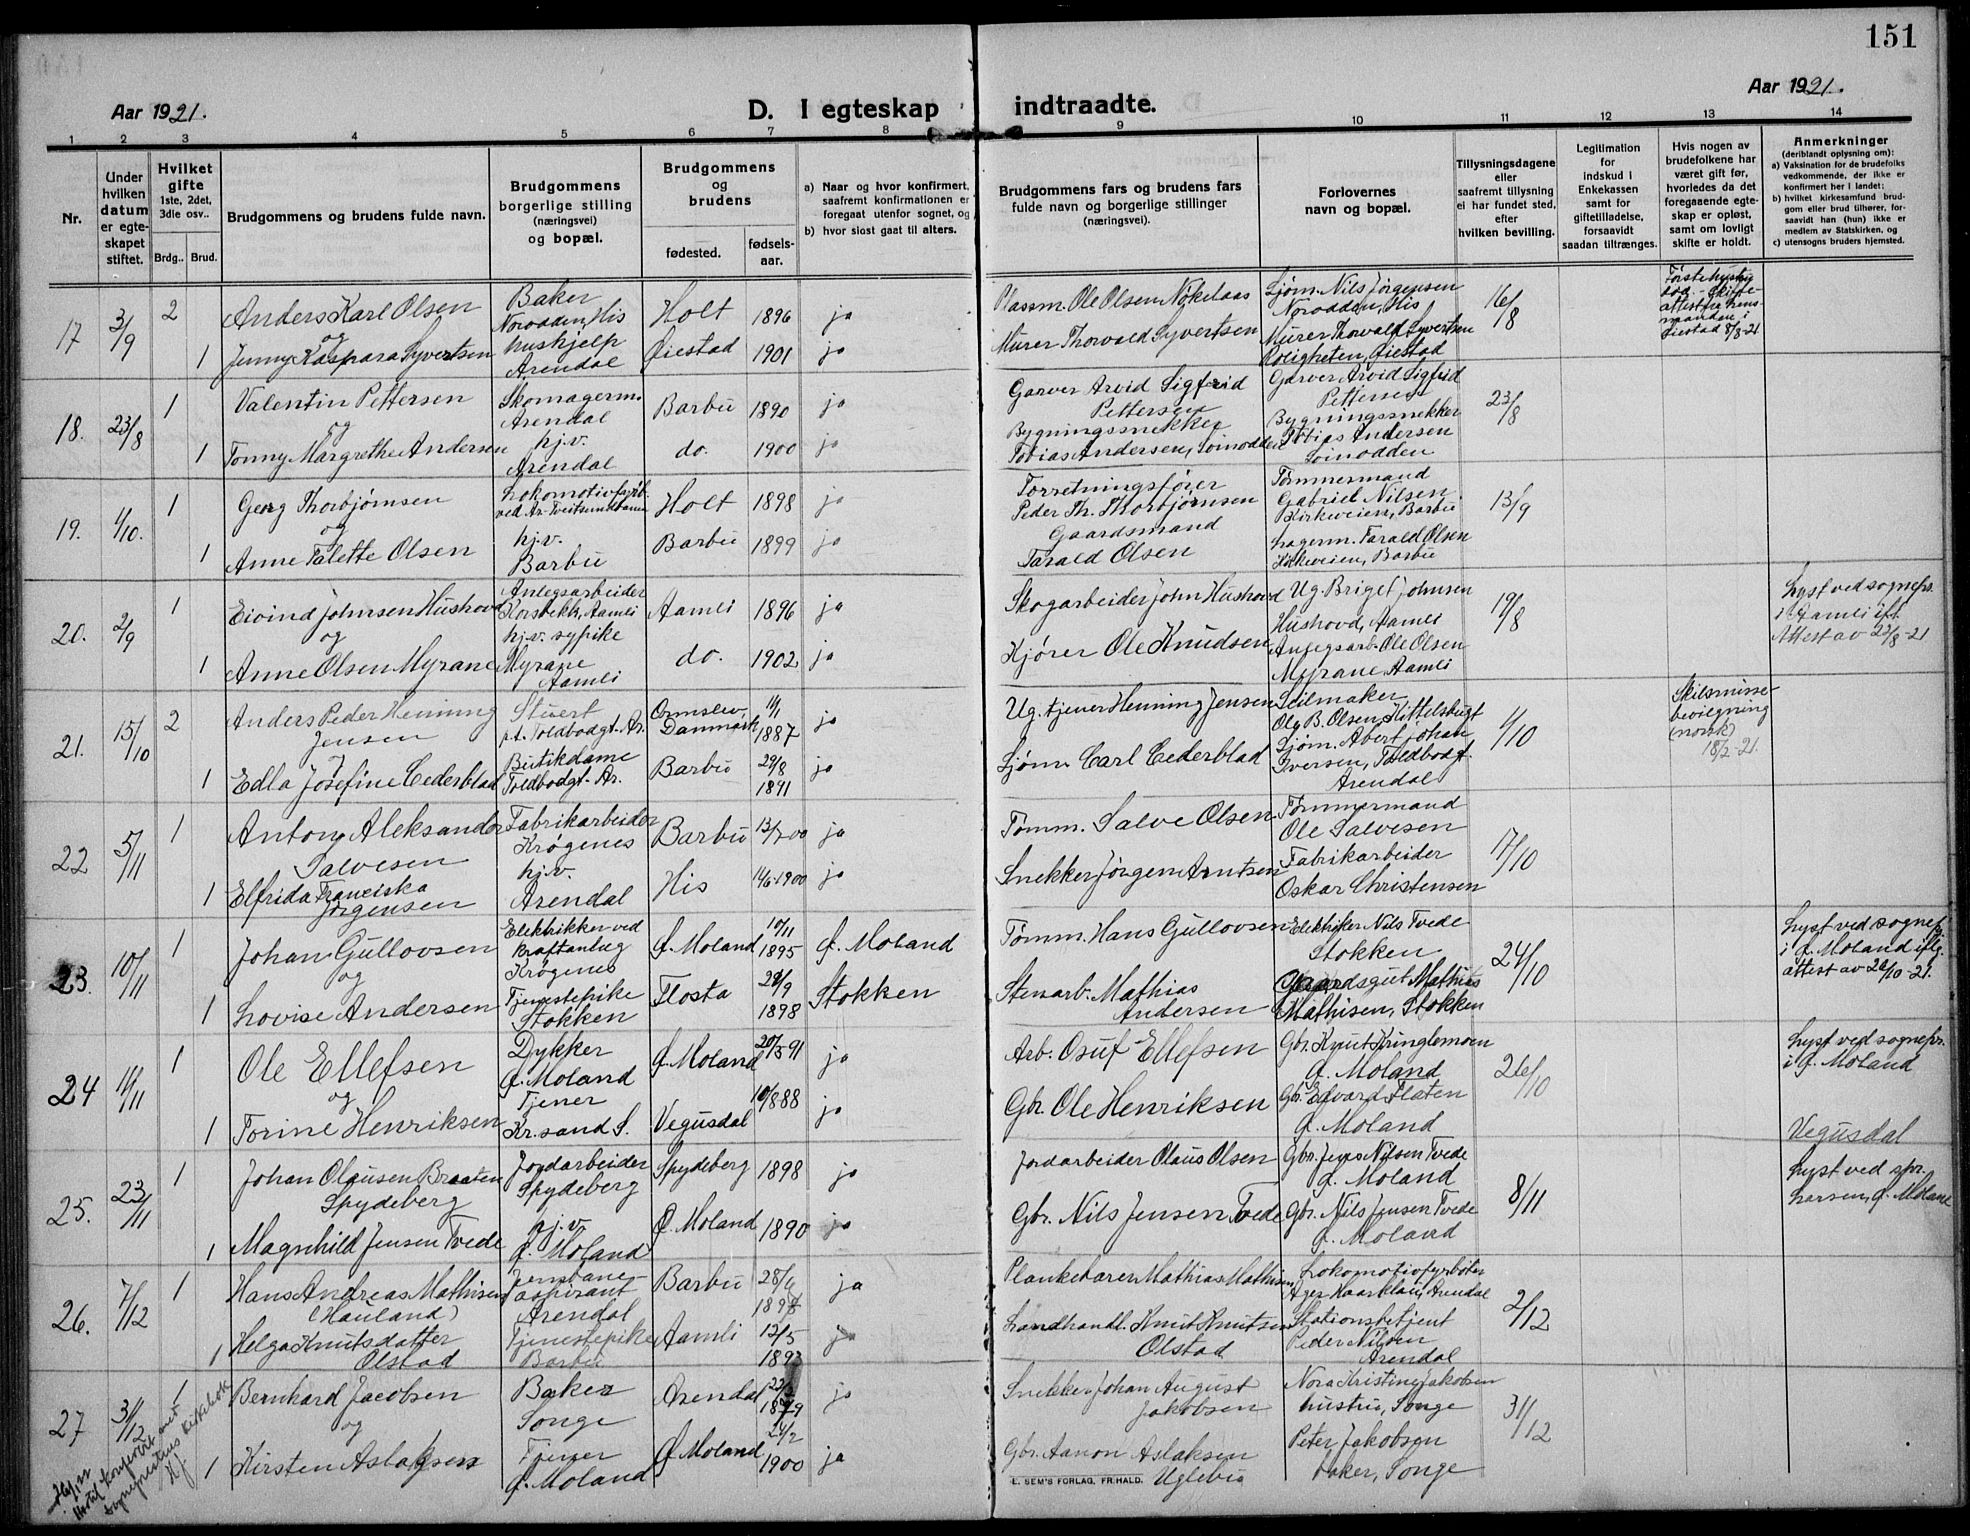 151
Aar 1921.
D. I egteskap indtraadte.
Aar 1921.
1 2 3 4 5 6 7 8 9 10 11 12 13 14
Nr.
Under hvilken datum er egteskapet stiftet.
Hvilket gifte 1ste, 2det, 3dle osv..
Brdg.. Brud.
Brudgommens og brudens fulde navn.
Brudgommens borgerlige stilling (næringsvei) og bopæl.
Brudgommens og brudens
fødested.
fødselsaar.
a) Naar og hvor konfirmert, saafremt konfirmationen er foregaat utenfor sognet, og
b) hvor sidst gaat til alters.
Brudgommens fars og brudens fars fulde navn og borgerlige stillinger (næringsvei).
Forlovernes navn og bopæl.
Tillysningsdagene eller saafremt tillysning ei har fundet sted, efter hvilken bevilling.
Legitimation for indskud i Enkekassen samt for giftetilladelse, forsaavidt saadan tiltrænges.
Hvis nogen av brudefolkene har været gift før, hvorledes da det foregaaende egteskap er opløst, samt om lovligt skifte er holdt.
Anmerkninger (deriblandt oplysning om):
a) Vaksination for de brudefolks vedkommende, der ikke er konfirmert her i landet;
b) hvilket kirkesamfund brudgom eller brud tilhører, forsaavidt han (hun) ikke er medlem av Statskirken, og
c) utensogns bruders hjemsted.
17 3/9 2 Anders Karl Olsen Baker Norodden, His Holt 1896 ja Plassm. Ole Olsen Nøkelaas Sjøm. Nils Jørgensen Norodden, His 16/8
og
1 Jenny Kaspara Syvertsen hushjelp Arendal Øiestad 1901 ja Murer Thorvald Syvertsen Murer Thorvald Syvertsen Roligheten, Øiestad
Første hustru død - Skifteattest fra lensmanden i Øiestad 8/8-21
18. 23/8 1 Valentin Pettersen Skomagerm. Arendal Barbu 1890 ja Garver Arvid Sigfrid Pettersen Garver Arvid Sigfrid Pettersen 23/8
og
1 Tonny Margrethe Andersen hj.v. Arendal do. 1900 ja Bygningssnekker Tobias Andersen, Soinodden Bygningssnekker Tobias Andersen Soinodden
19. 1/10. 1 Georg Thorbjørnsen Lokomotivfyrb. ved Ar. Treitsundbanen Holt 1898 ja Forretningsfører Peder Th. Thorbjørnsen Tømmermand Gabriel Nilsen Kirkeveien, Barbu 13/9
og
1 Anne Talette Olsen hj.v. Barbu Barbu 1899 ja Gaardsmand Tarald Olsen Lagerm. Tarald Olsen Kirkeveien, Barbu
20. 2/9 1 Eivind Johnsen Hushovd Anlegsarbeider Korsbekk, Aamli Aamli 1896 ja Skogarbeider John Hushovd Ug. Briget Johnsen Hushovd, Aamli 19/8
og
1 Anne Olsen Myrane hj.v. sypike Myrane Aamli do. 1902 ja Kjører Ole Knudsen Anlegsarb. Ole Olsen Myrane Aamli
Lyst ved sognepr. i Aamli ifl. Attest av 23/8-21
21. 15/10 2 Anders Peder Henning Jensen Stuert p.t. Toldbodgt. Ar. Ormslev, Danmark 11/1 1887 ja Ug. tjener Henning Jensen Seilmaker Olg B. Olsen, Kittelsbugt 1/10
1 Edla Josefine Cederblad Butikdame Toldbodgt. Ar. Barbu 29/8 1891 ja Sjøm. Carl Cederblad Sjøm. Abert Johan Iversen, Toldbodgt. Arendal
Skilsmissebevilgning (norsk) 18/2-21.
22 5/11 1 Anton Aleksander Salvesen Fabrikarbeider Krøgenes Barbu 13/7 00 ja Tømm. Salve Olsen Tømmermand Ole Salvesen 17/10
1 Elfrida Franciska Jørgensen hj.v. Arendal His 14/6-1900 ja Snekker Jørgen Arntsen Fabrikarbeider Oskar Christensen
23. 10/11 1 Johan Gullovsen Elektrikker ved Kraftanleg Krøgenes Ø. Moland 10/11 1895 Ø. Moland Tømm. Hans Gullovsen Elektriker Nils Tvede Stokken 24/10
og
1 Lovise Andersen Tjenestepike Stokken Flosta 29/9 1898 Stokken Stenarb. Mathias Andersen Gaardsgut Mathias Mathisen, Stokken
Lyst ved sognepr. i Ø. Moland iflg. attest av 26/10-21.
24 11/11 1 Ole Ellefsen Dykker Ø. Moland Ø. Moland 20/3 91 ja Arb. Osuf Ellefsen Gbr. Knut Kringlemoen Ø. Moland 26/10
og
1 Torine Henriksen Tjener Kr.sand S. Vegusdal 10/8 88 ja Gbr. Ole Henriksen Gbr. Edvard Flaten Ø. Moland
Lyst ved sognepr. i Ø. Moland
Vegusdal
25. 23/11 1 Johan Olausen Braaten Spydeberg Jordarbeider Spydeberg Spydeberg 1898 ja Jordarbeider Olaus Olsen Gbr. Jens Nilsen Tvede Ø. Moland 8/11
1 Magnhild Jensen Tvede hj.v. Ø. Moland Ø. Moland 1890 ja Gbr. Nils Jensen Tvede Gbr. Nils Jensen Tvede Ø. Moland
Lyst ved spr. Larsen, Ø. Moland
26. 7/12 1 Hans Andreas Mathisen (Hauland) Jernbaneaspirant Arendal Barbu ja Plankebærer Mathias Mathisen Lokomotivfyrbøter Arendal 2/12
1 Helga Knutsdatter Olstad Tjenestepike Barbu Aamli 13/5 ja Landhandl. Knut Knutsen Olstad Stationsbetjent Peder Nilsen Arendal
27 31/12 1 Bernhard Jacobsen Baker Songe Arendal ja Snekker Johan August Jakobsen Nora Kristine Jakobsen hustru, Songe 31/12
og
1 Kirsten Aslaksen Tjener Ø. Moland Ø. Moland 1900 ja Gbr. Aanon Aslaksen Uglebu Peter Jakobsen baker, Songe
Hertil konferert med sogneprestens kirkebok
E. SEM'S FORLAG, FR.HALD.